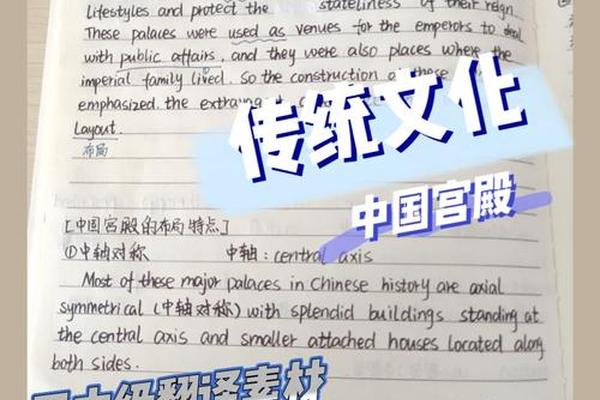 lifestyles and protect the stateliness of their reign
These palaces were used as venues for the emperors to deal
with public affairs, and they were also places where the
imperial family lived. So the construction of these
emphasized the
Layout.
布局
传统文化
中国宫殿
[中国宫殿的布局特点]
①中轴对称 中轴：central axis
Most of these major palaces in Chinese history are axial
symmetrical (中轴对称) with splendid buildings standing at
the central axis and smaller attached houses located along
both sides.
翻译素材